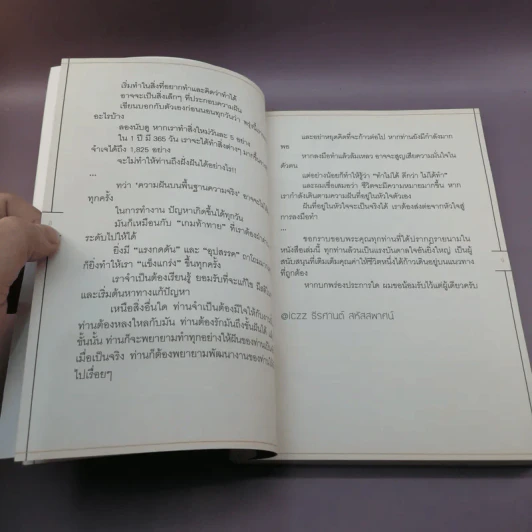 เริ่มทำในสิ่งที่อยากทำและคิดว่าทำได้
อาจจะเป็นสิ่งเล็กๆ ที่ประกอบความฝัน
เขียนบอกกับตัวเองก่อนนอนทุกวันว่า พรุ่งนี้
อะไรบ้าง
ลองนับดู หากเราทำสิ่งใหม่วันละ 5 อย่าง
ใน 1 ปี มี 365 วัน เราจะได้ทำสิ่งต่างๆ มากขึ้น
จำเจได้ถึง 1,825 อย่าง
จะไม่ทำให้ท่านถึงฝั่งฝันได้อย่างไร!
...
ทว่า "ความฝันบนพื้นฐานความจริง" อาจจะไม่
ทุกครั้ง
ในการทำงาน ปัญหาเกิดขึ้นได้ทุกวัน
มันก็เหมือนกับ "เกมท้าทาย" ที่เราต้อง
ระดับไปให้ได้
ยิ่งมี "แรงกดดัน" และ "อุปสรรค" ถาโถม
ก็ยิ่งทำให้เรา "แข็งแกร่ง" ขึ้นทุกครั้ง
เราจำเป็นต้องเรียนรู้ ยอมรับที่จะแก้ไข มีสติ
และเริ่มต้นหาทางแก้ปัญหา
เหนือสิ่งอื่นใด ท่านจำเป็นต้องมีใจให้กับ
ท่านต้องหลงใหลกับมัน ท่านต้องรักมันถึงขั้นฝันได้
ขั้นนั้น ท่านก็จะพยายามทำทุกอย่างให้ฝันของท่าน
เมื่อเป็นจริง ท่านก็ต้องพยายามพัฒนางานของท่าน
ไปเรื่อยๆ
และอย่าหยุดคิดที่จะก้าวต่อไป หากท่านยังมีกำลังมาก
พอ
หากลงมือทำแล้วล้มเหลว อาจจะสูญเสียความมั่นใจใน
ตัวตน
แต่อย่างน้อยก็ทำให้รู้ว่า "ทำไม่ได้ ดีกว่า ไม่ได้ทำ"
และผมเชื่อเสมอว่า ชีวิตจะมีความหมายมากขึ้น หาก
เรากำลังเดินตามความฝันที่อยู่ในหัวใจตัวเอง
ฝันที่อยู่ในหัวใจจะเป็นจริงได้ เราต้องส่งต่อจากหัวใจสู่
การลงมือทำ
...
ขอกราบขอบพระคุณทุกท่านที่ได้ปรากฏรายนามใน
หนังสือเล่มนี้ ทุกท่านล้วนเป็นแรงบันดาลใจอันยิ่งใหญ่ เป็นผู้
สนับสนุนที่เติมเต็มคุณค่าให้ชีวิตหนึ่งได้ก้าวเดินอยู่บนแนวทาง
ที่ถูกต้อง
หากบกพร่องประการใด ผมขอน้อมรับไว้แต่ผู้เดียวครับ
@iczz ธีรศานต์ สหัสสพาศน์